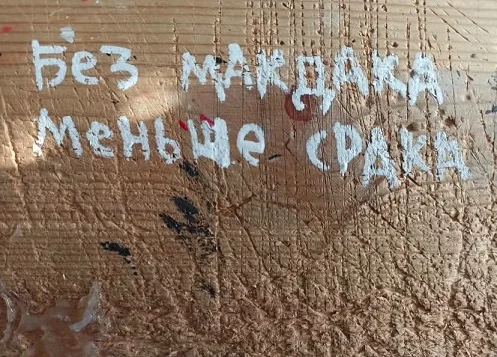 Без МАКДАКА
Меньше СРАКА